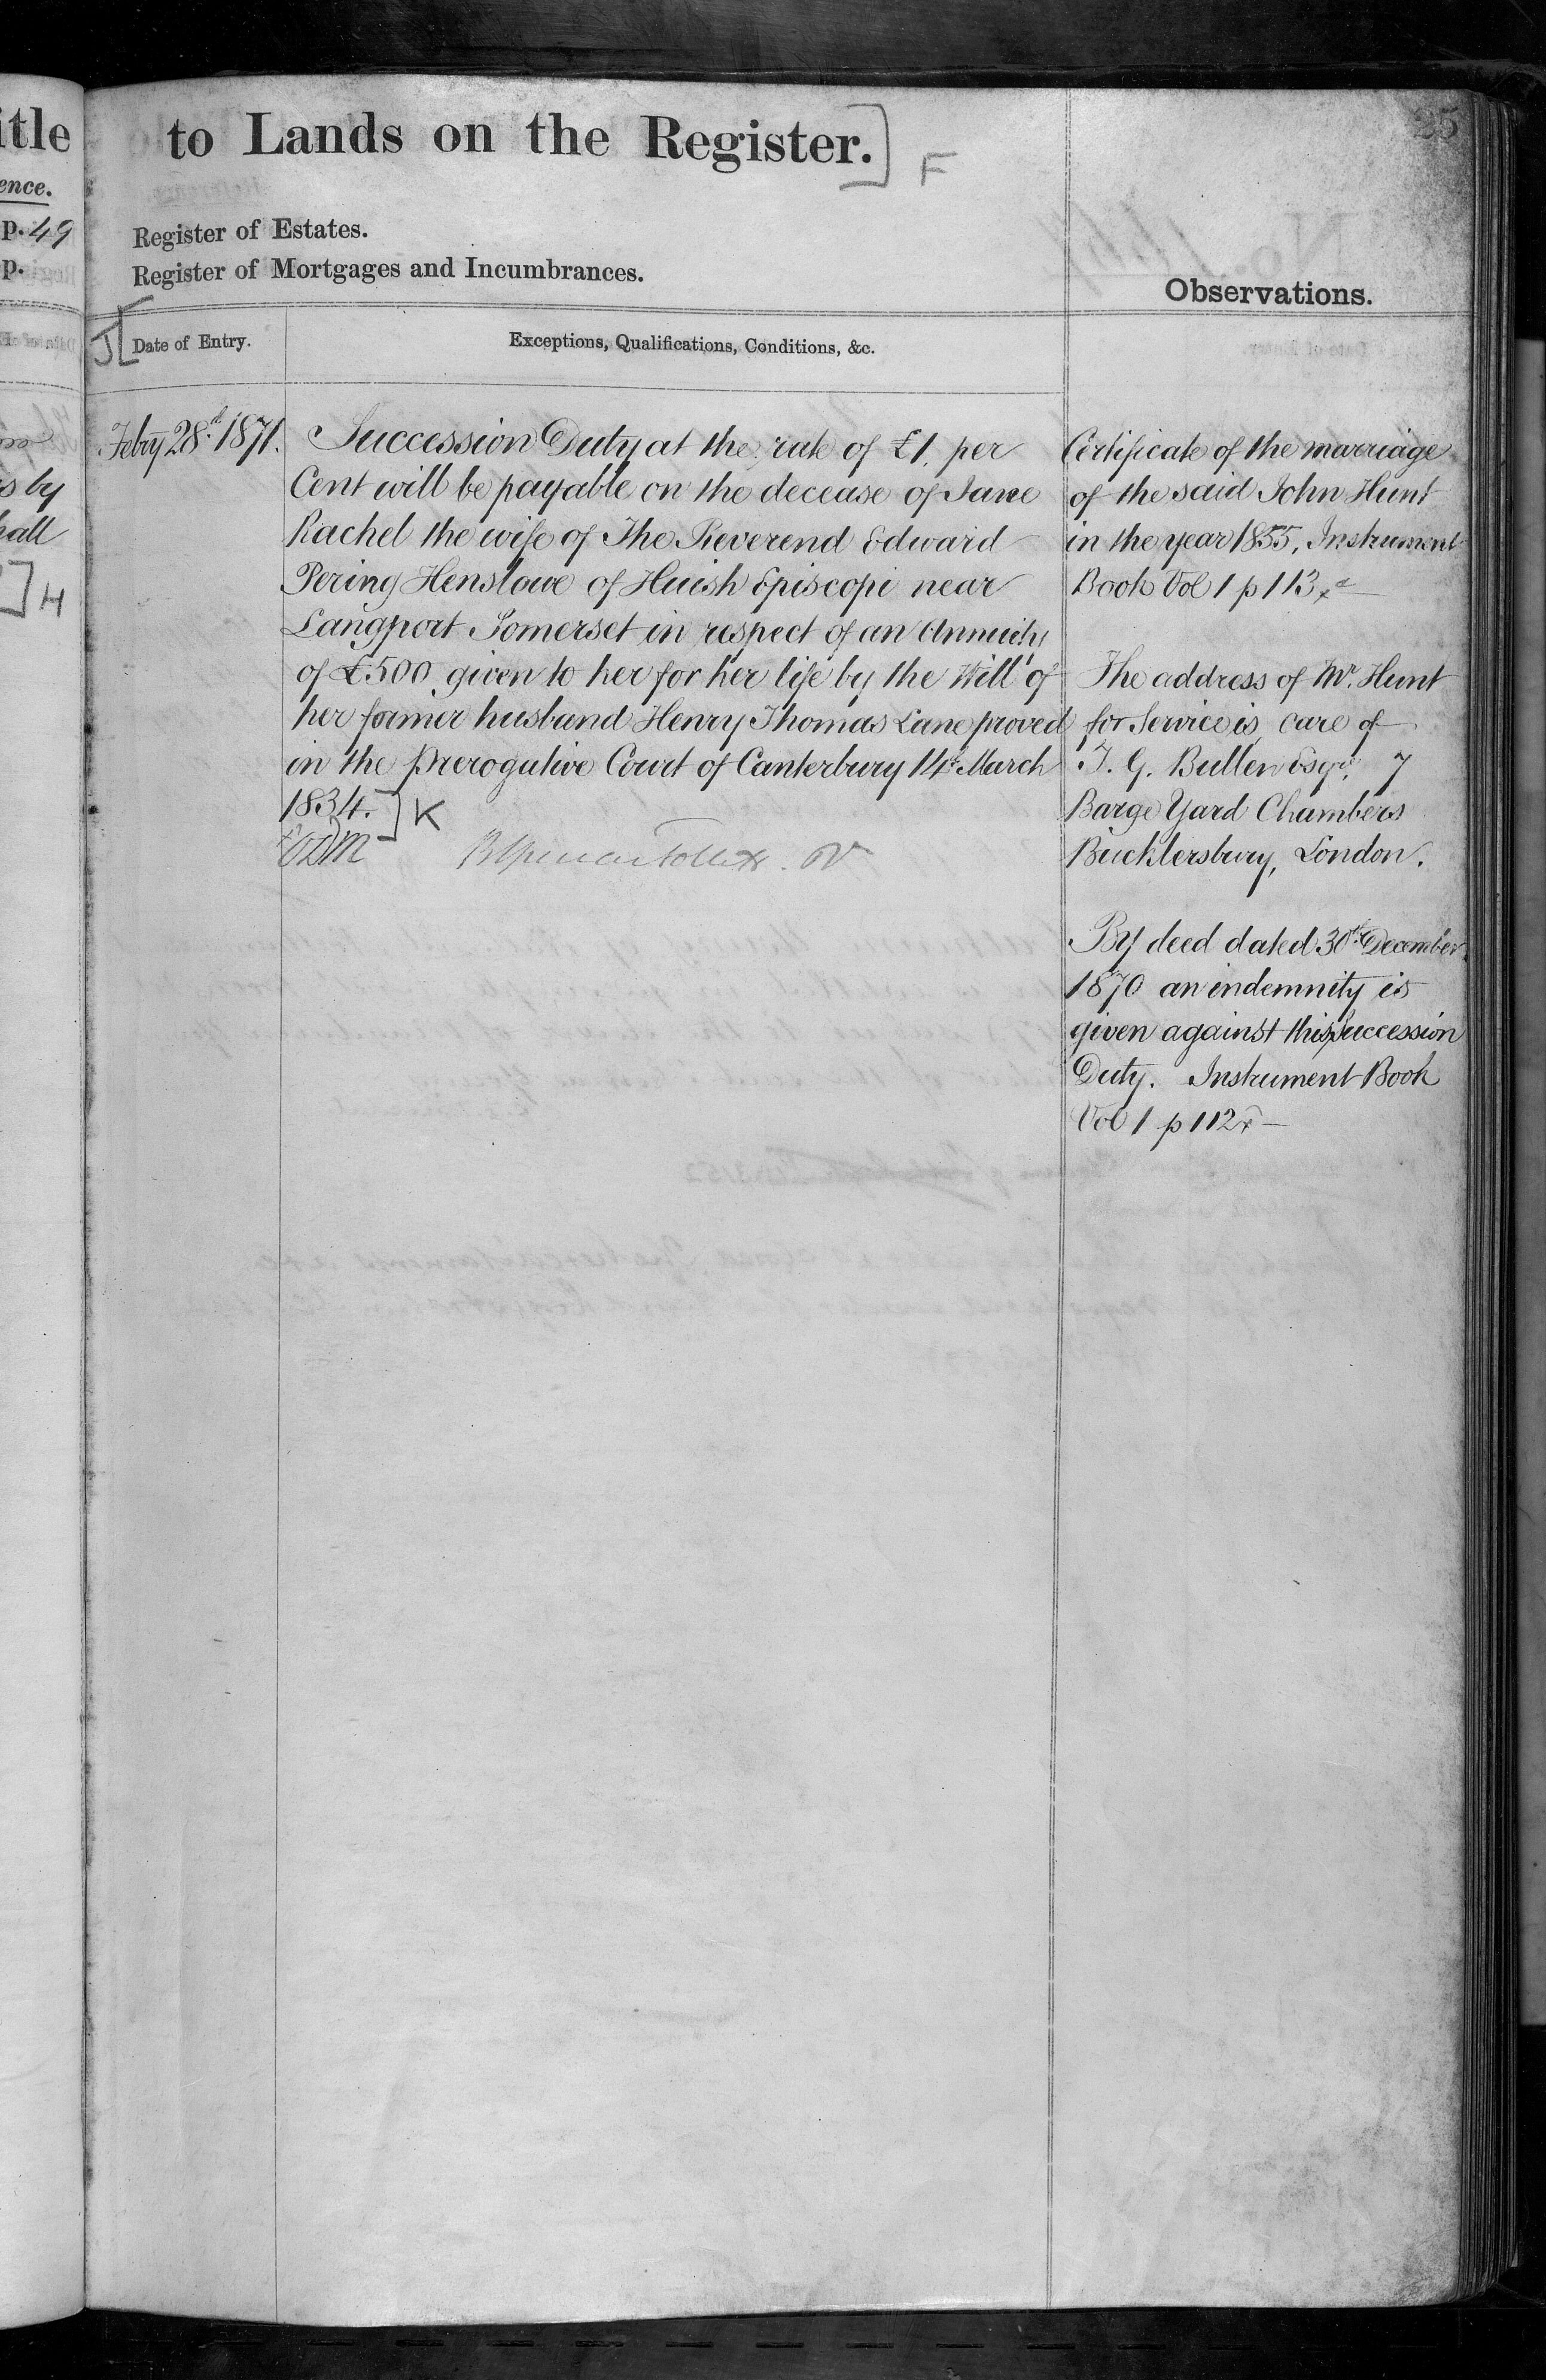 itle
ence.
p. 49
p.
s by
hall
] H
25
to Lands on the Register.] F
Register of Estates.
Register of Mortgages and Incumbrances.
J[ Date of Entry.
Exceptions, Qualifications, Conditions, &c.
Febry 28.d 1871.
Succession Duty at the rate of £1. per
Cent will be payable on the decease of Jane
Rachel the wife of The Reverend Edward
Pering Henslowe of Huish Episcopi near
Langport Somerset in respect of an Annuity
of £500 given to her for her life by the Will of
her former husband Henry Thomas Lane proved
in the Prerogative Court of Canterbury 14th March
1834.] K
Observations.
Certificate of the marriage
of the said John Hunt
in the year 1855, Instrument
Book Vol 1 p 113
The address of Mr. Hunt
for Service is care of
T. G. Bullen Esqr. 7
Barge Yard Chambers
Bucklersbury, London.
By deed dated 30th December
1870 an indemnity is
given against this Succession
Duty. Instrument Book
Vol 1 p 112